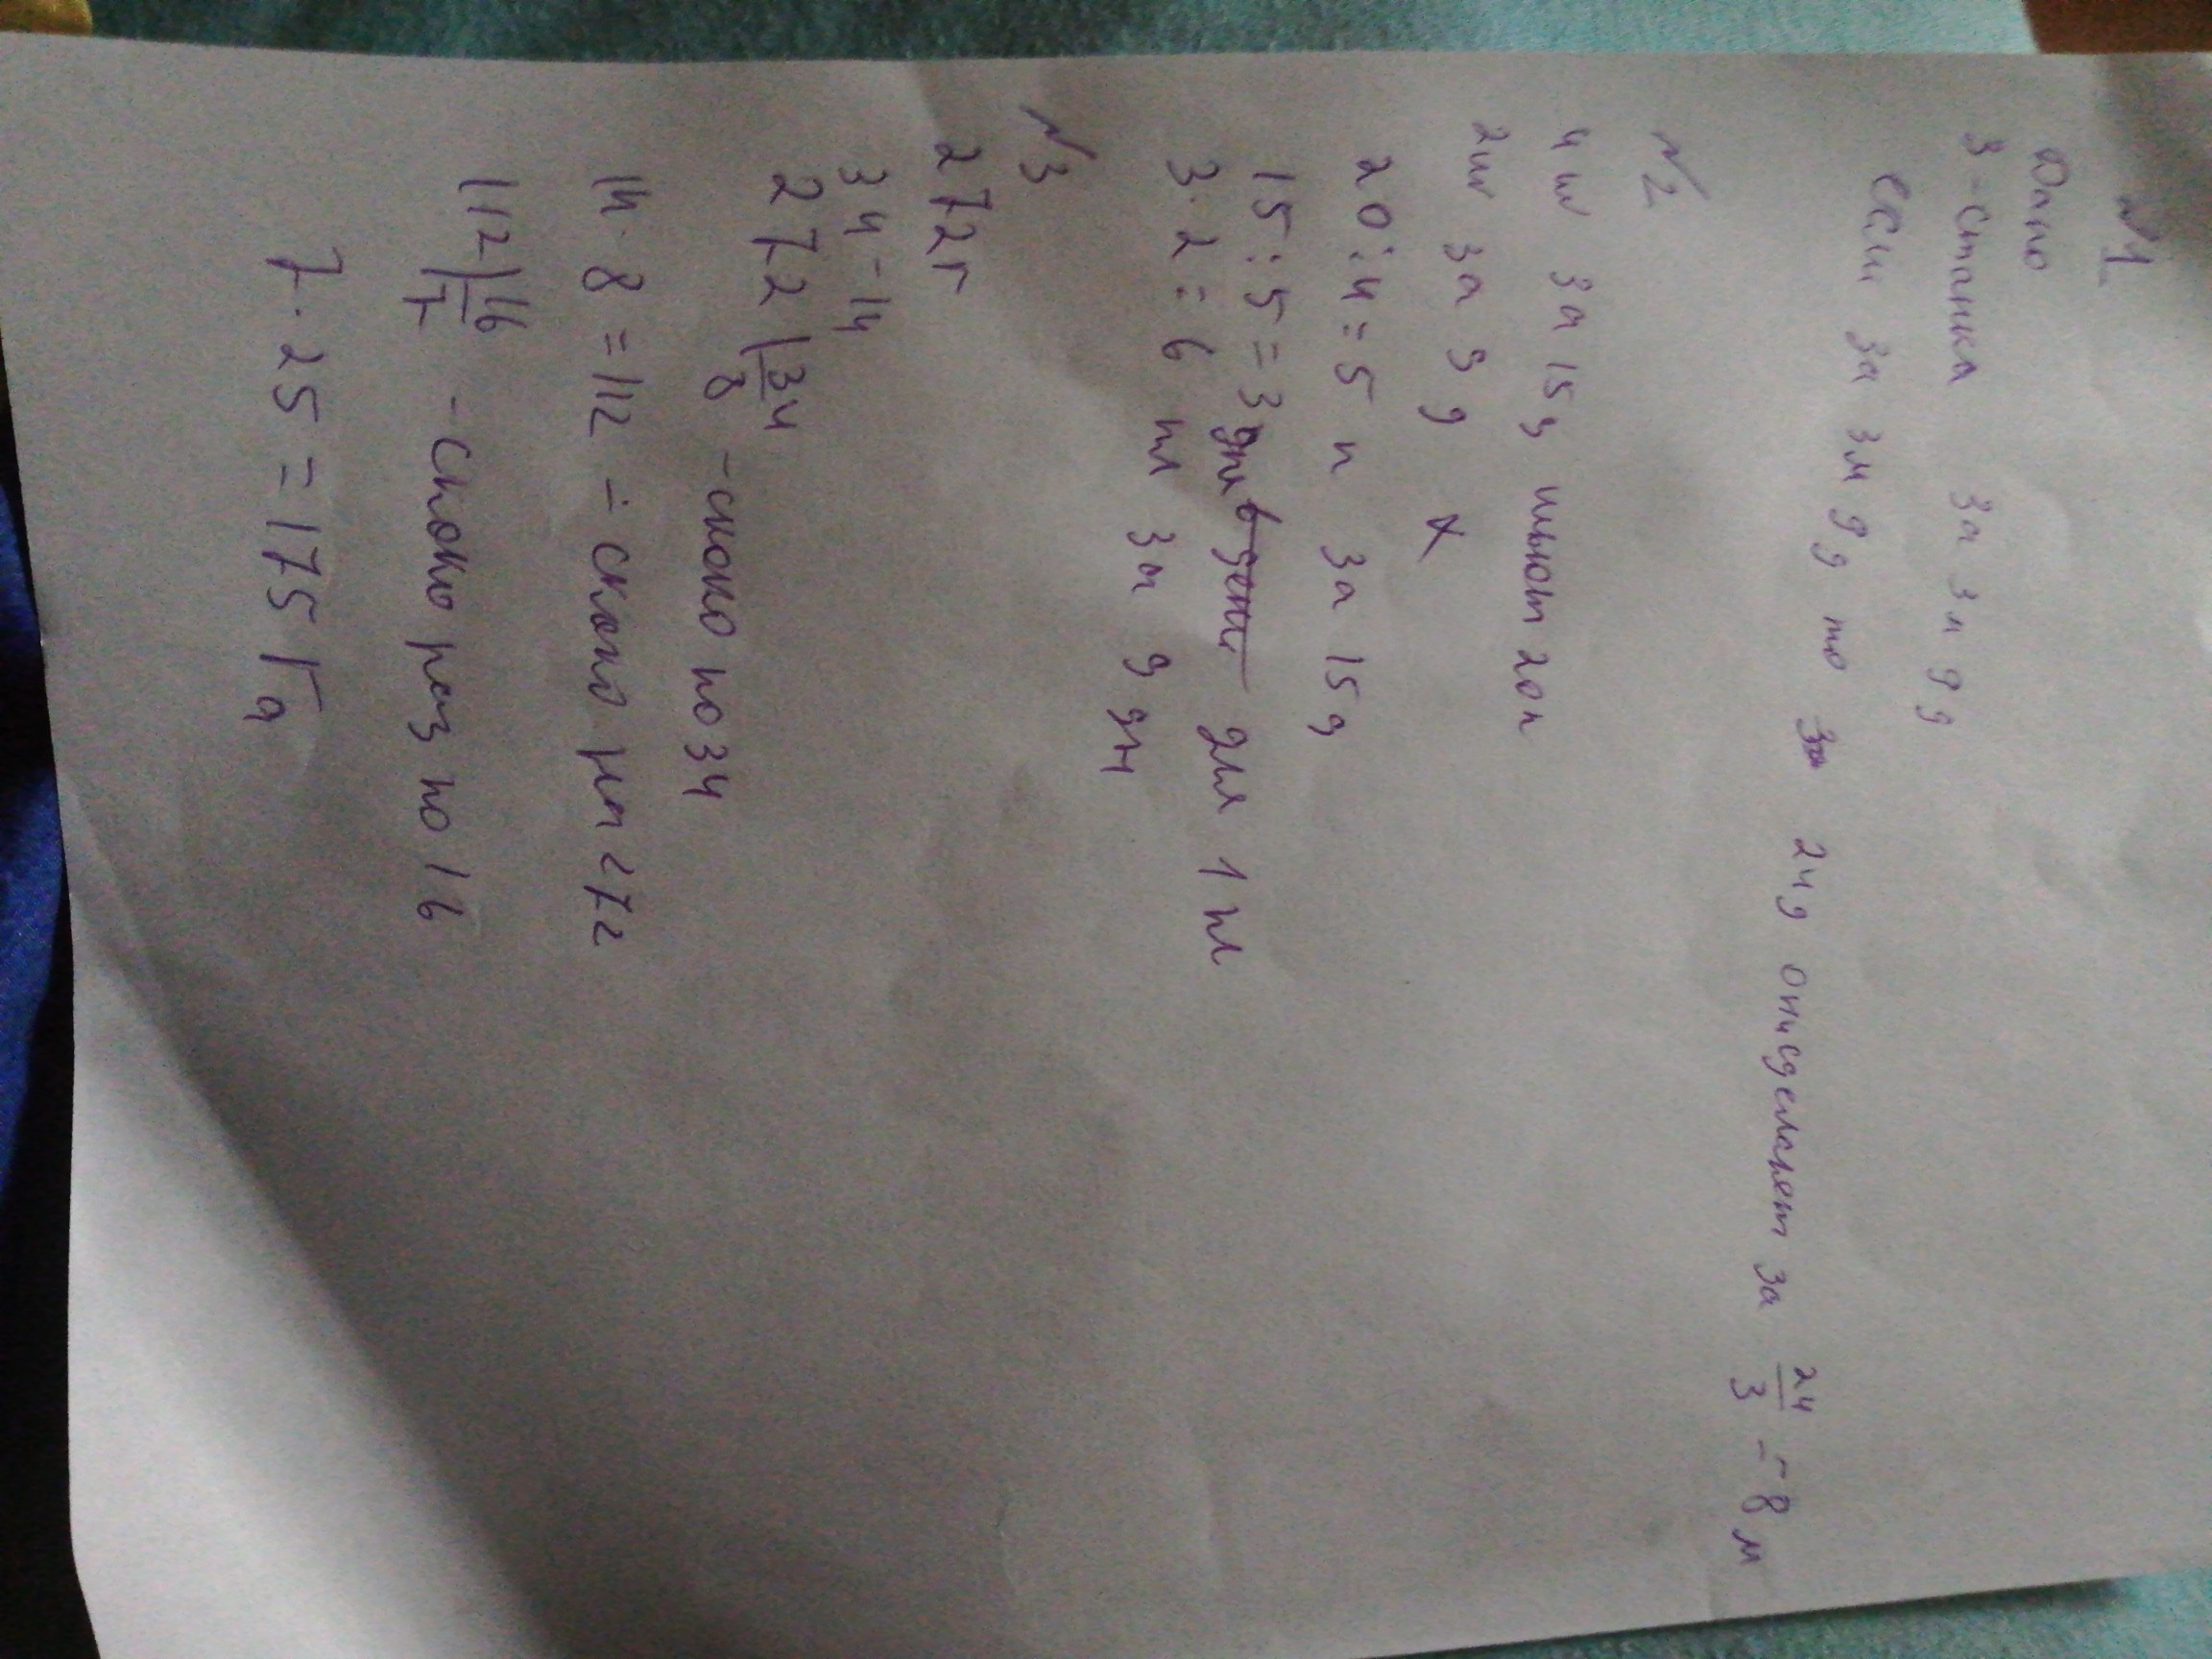 №1
Дано
3-станка за 3м 9д
если за 3м 9д то 24д они сделают за 24/3 = 8м
№2
4ш за 15д шьют 20п
2ш за 9д x
20:4=5 п за 15д
15:5=3дня для 1 пл
3·2=6 пл за 9 дн
№3
272г
34-14
272|34
8 - скоко по 34
14·8=112 - скоко на 272
112|16
7 - скоко раз по 16
7·25=175 Га